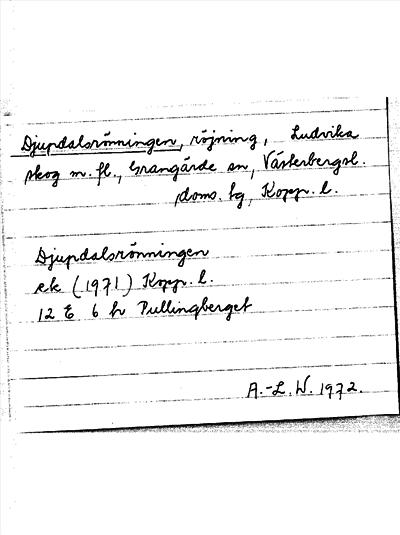 Djupdalsrönningen, röjning, Ludvika
skog m. fl., Grangärde sn, Västerbergsl.
doms. hg, Kopp. l.
Djupdalsrönningen
ek (1971) Kopp. l.
12 E 6 h Pullingberget
A.-L. W. 1972.